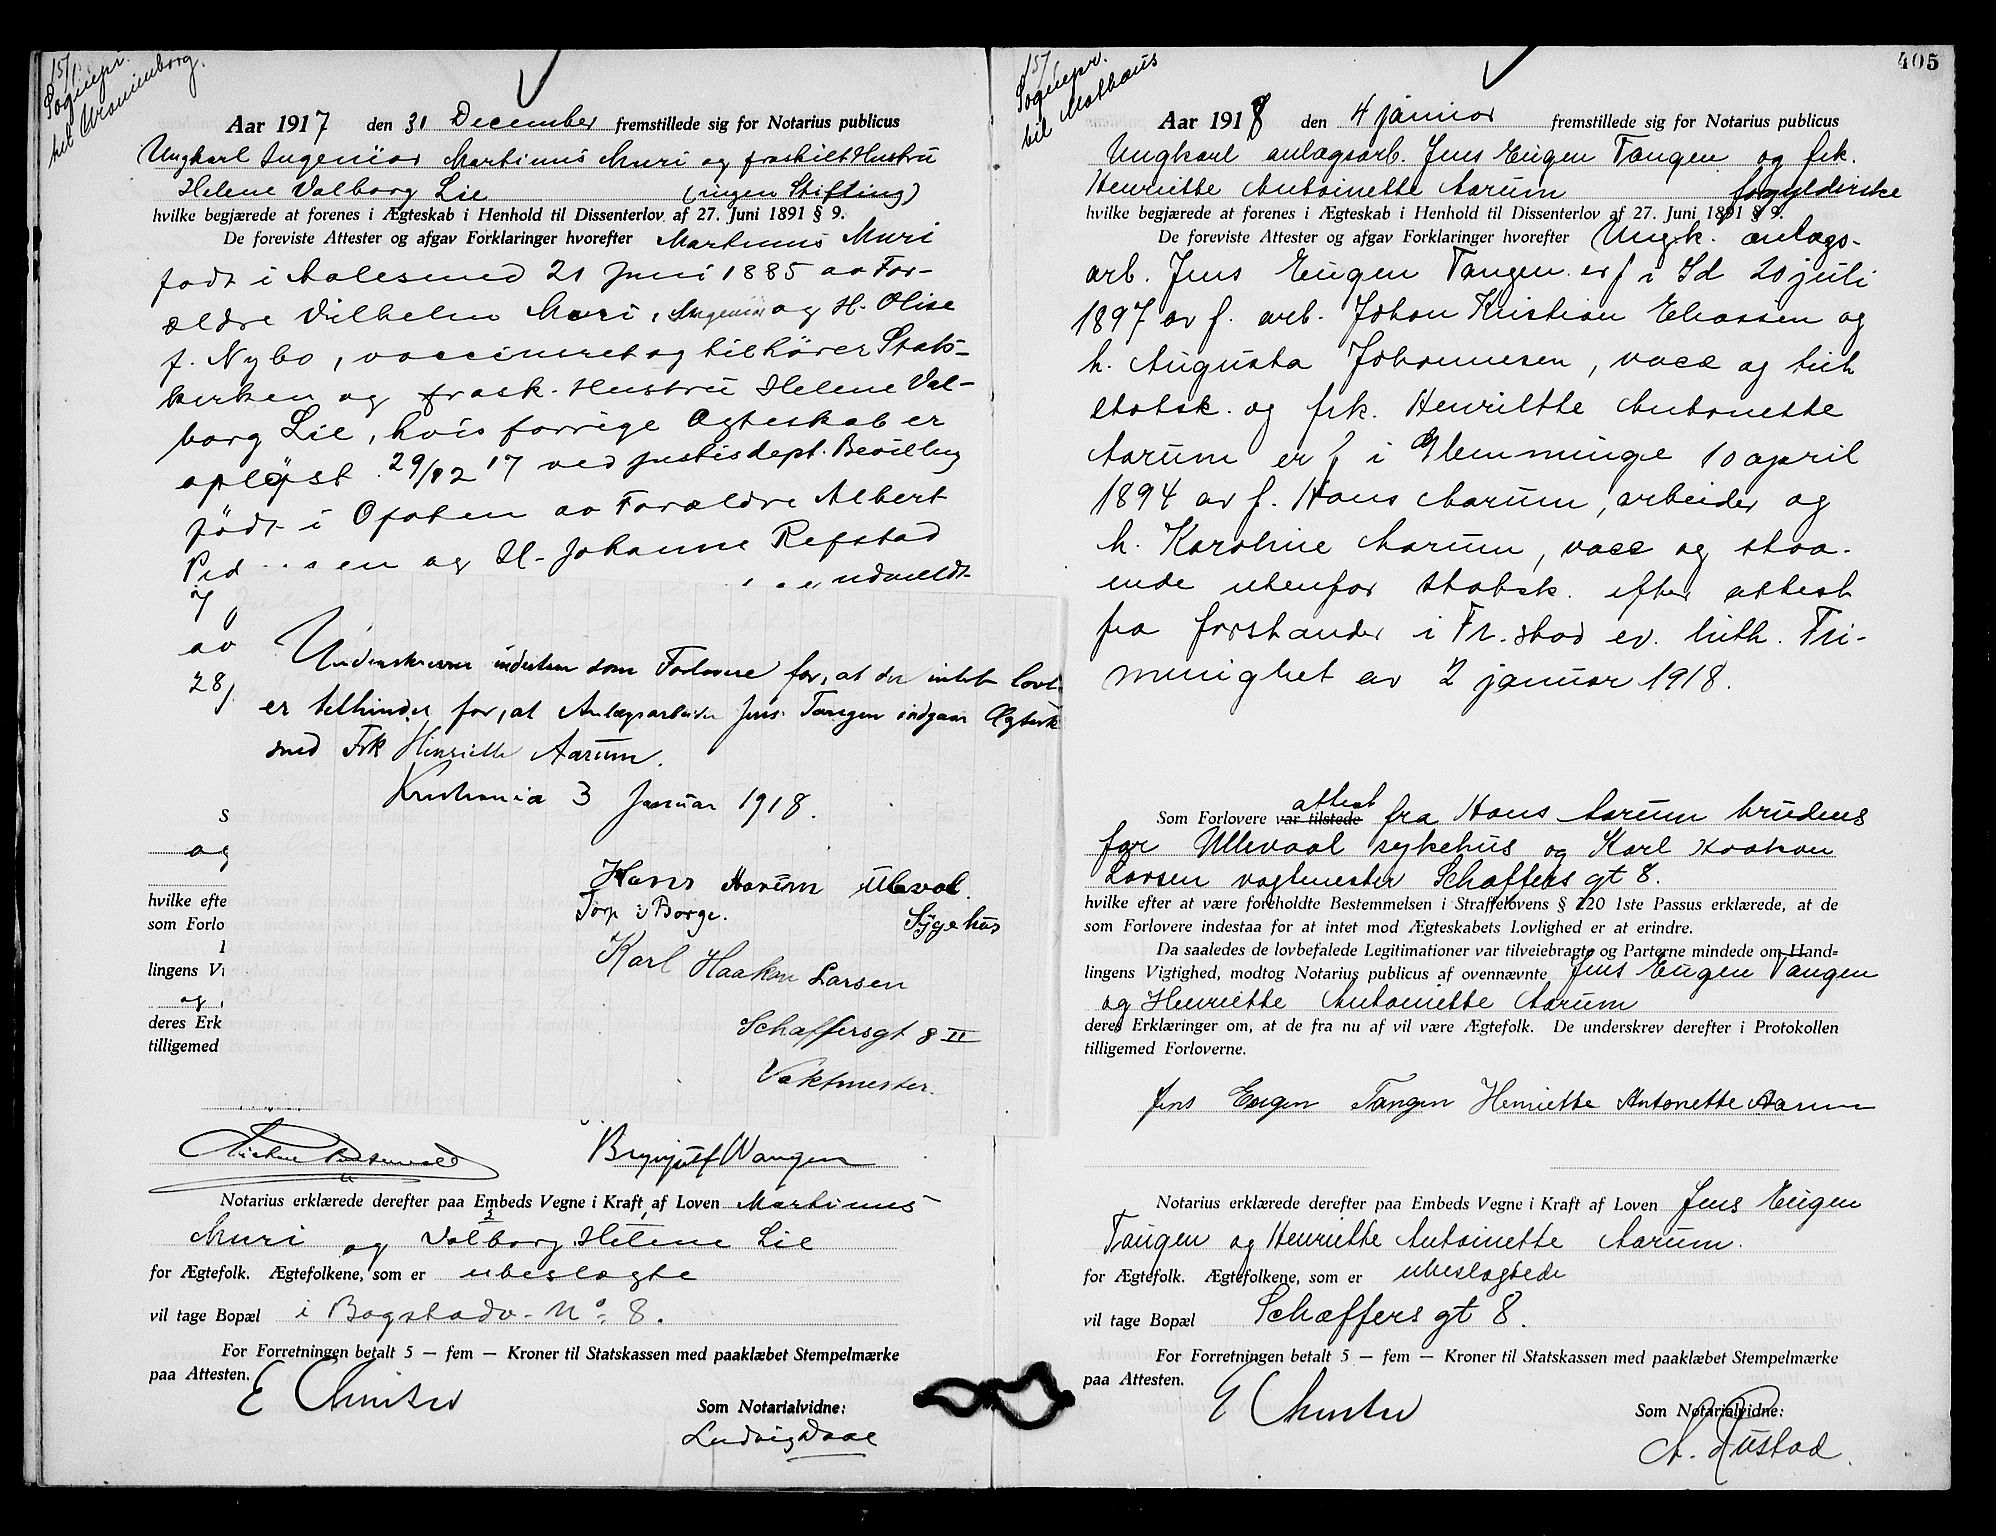 15/1
Sognepr.
til Uranienborg.
Aar 1917 den 31 December fremstillede sig for Notarius publicus
Ungkarl Ingeniør Martinus Muri og fraskilt Hustru
Helene Valborg Lie (ingen Stifting)
hvilke begjærede at forenes i Ægteskab i Henhold til Dissenterlov af 27. Juni 1891 § 9.
De foreviste Attester og afgav Forklaringer hvorefter Martinus Muri
født i Aalesund 21 Juni 1885 av For-
ældre Vilhelm Muri, Ingeniør og H. Olise
f. Nybo, vaccineret og tilhører Stats-
kirken og frask. Hustru Helene Val-
borg Lie, hvis forrige Ægteskab er
opløst 29/12 17 ved Justisdept. Bevilling
født i Ofoten av Forældre Albert
Ped...sen og H. Johanne Refstad
udmeldt
av
28/
Underskrevne indestaa som Forlovere for, at der intet lovl.
er tilhinder for, at Anlægsarbeider Jens Tangen indgaar Ægtesk
med Frk Henriette Aarum.
Kristiania 3 Januar 1918.
Hans Aarum Uleval
Torp i Borge. Sygehus
Karl Haakon Larsen
Schaffersgt 8 II
Vaktmester.
S
og
hvilke efte
som Forlo
lingens Vi
og
deres Erk
tilligemed
Brynjulf Wangen
Notarius erklærede derefter paa Embeds Vegne i Kraft af Loven Martinus
Muri og Valborg Helene Lie
for Ægtefolk. Ægtefolkene, som er ubeslægte
vil tage Bopæl i Bogstadv. No. 8.
For Forretningen betalt 5 — fem — Kroner til Statskassen med paaklæbet Stempelmærke
paa Attesten.
Som Notarialvidne:
Ludvig Daae
405
15/1
Sognepr.
til Malhaus
Aar 1918 den 4 januar fremstillede sig for Notarius publicus
Ungkarl anlægsarb. Jens Eugen Tangen og frk.
Henriette Antoinette Aarum
hvilke begjærede at forenes i Ægteskab i Henhold til Dissenterlov af 27. Juni 1891 § 9.
De foreviste Attester og afgav Forklaringer hvorefter Ungk. anlægs-
arb. Jens Eugen Tangen er f i Id 20 juli
1897 av f. arb. Johan Kristian Eliassen og
h. Augusta Johannesen, vacc og tilh
statsk. og frk. Henriette Antonette
Aarum er f i Glemminge 10 april
1894 av f. Hans Aarum, arbeider og
h. Karoline Aarum, vacc og staa-
ende utenfor statsk. efter attest
fra forstander i Fr.stad ev. luth. Fri-
menighet av 2 januar 1918.
Som Forlovere var tilstede attest fra Hans Aarum brudens
far Ullevaal sykehus og Karl Haakon
Larsen vagtmester Schaffers gt 8.
hvilke efter at være foreholdte Bestemmelsen i Straffelovens § 220 1ste Passus erklærede, at de
som Forlovere indestaa for at intet mod Ægteskabets Lovlighed er at erindre.
Da saaledes de lovbefalede Legitimationer var tilveiebragte og Parterne mindede om Hand=
lingens Vigtighed, modtog Notarius publicus af ovennævnte Jens Eugen Tangen
og Henriette Antoinette Aarum
deres Erklæringer om, at de fra nu af vil være Ægtefolk. De underskrev derefter i Protokollen
tilligemed Forloverne.
Jens Eugen Tangen Henriette Antonette Aarum
Notarius erklærede derefter paa Embeds Vegne i Kraft af Loven Jens Eugen
Tangen og Henriette Antoinette Aarum.
for Ægtefolk. Ægtefolkene, som er ubeslægtede
vil tage Bopæl Schæffers gt 8.
For Forretningen betalt 5 — fem — Kroner til Statskassen med paaklæbet Stempelmærke
paa Attesten.
Som Notarialvidne:
A. Rustad